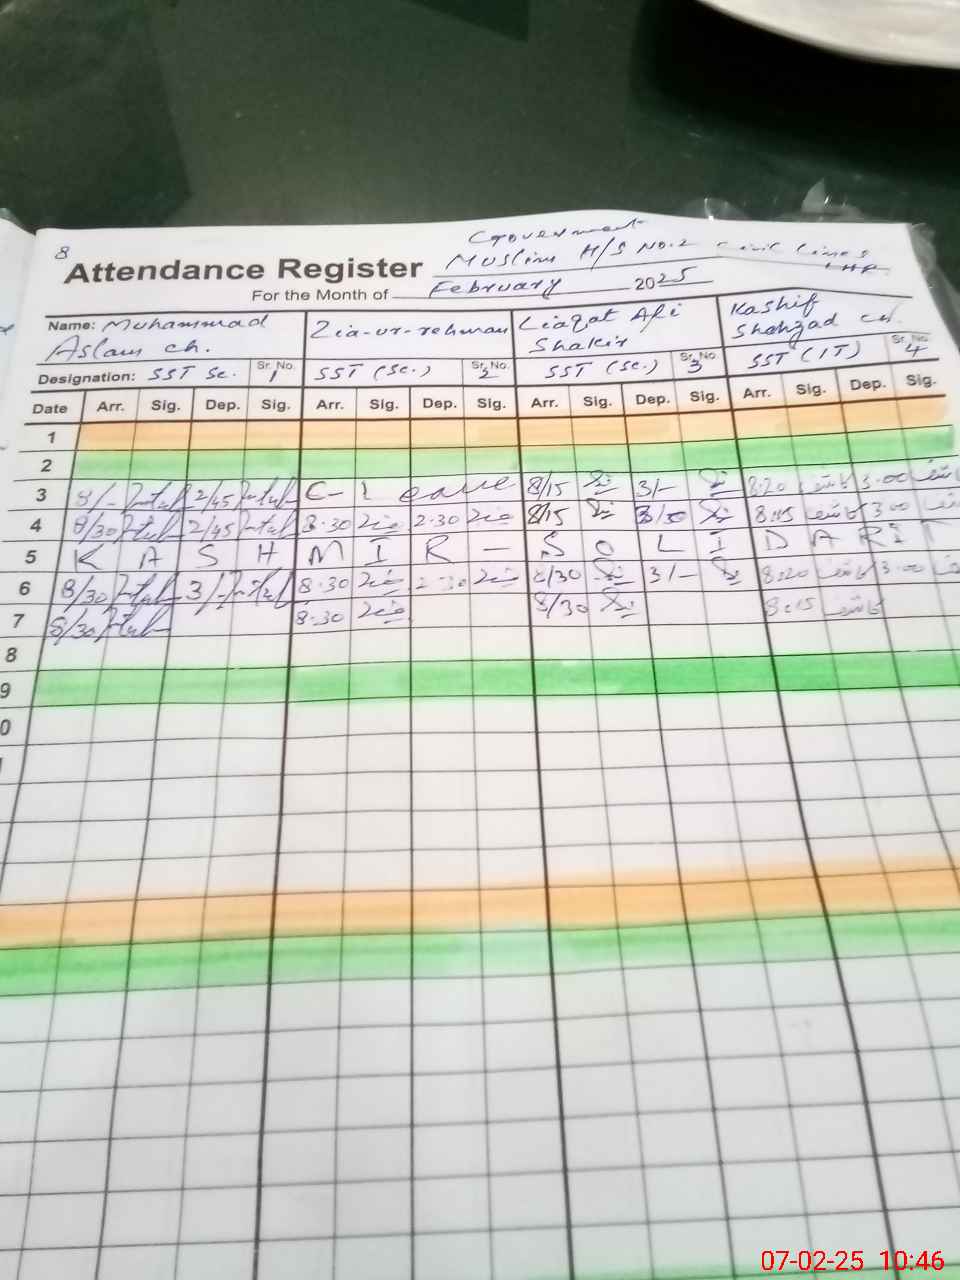 8
Government
Attendance Register Muslim H/S No.2 Civil Lines LHR
For the Month of February 2025
Name: Muhammad Aslam Ch. Zia-ur-rehman Liaqat Ali Shakir Kashif Shahzad Ch.
Designation: SST Sc. Sr. No. 1 SST (Sc.) Sr. No. 2 SST (Sc.) Sr. No. 3 SST (IT) Sr. No. 4
Date Arr. Sig. Dep. Sig. Arr. Sig. Dep. Sig. Arr. Sig. Dep. Sig. Arr. Sig. Dep. Sig.
1
2
3 8/- 2/45 C- Leave 8/15 3/- 8:20 کاشف 3:00 کاشف
4 8/30 2/45 8:30 ضیاء 2:30 ضیاء 8/15 8:15 کاشف 3:00
5 K A S H M I R - S O L I D A R I T
6 8/30 3/- 8:30 ضیاء 2:30 ضیاء 8/30 3/- 8:20 کاشف 3:00
7 8/30 8:30 ضیاء 8/30 8:15 کاشف
8
9
0
07-02-25 10:46